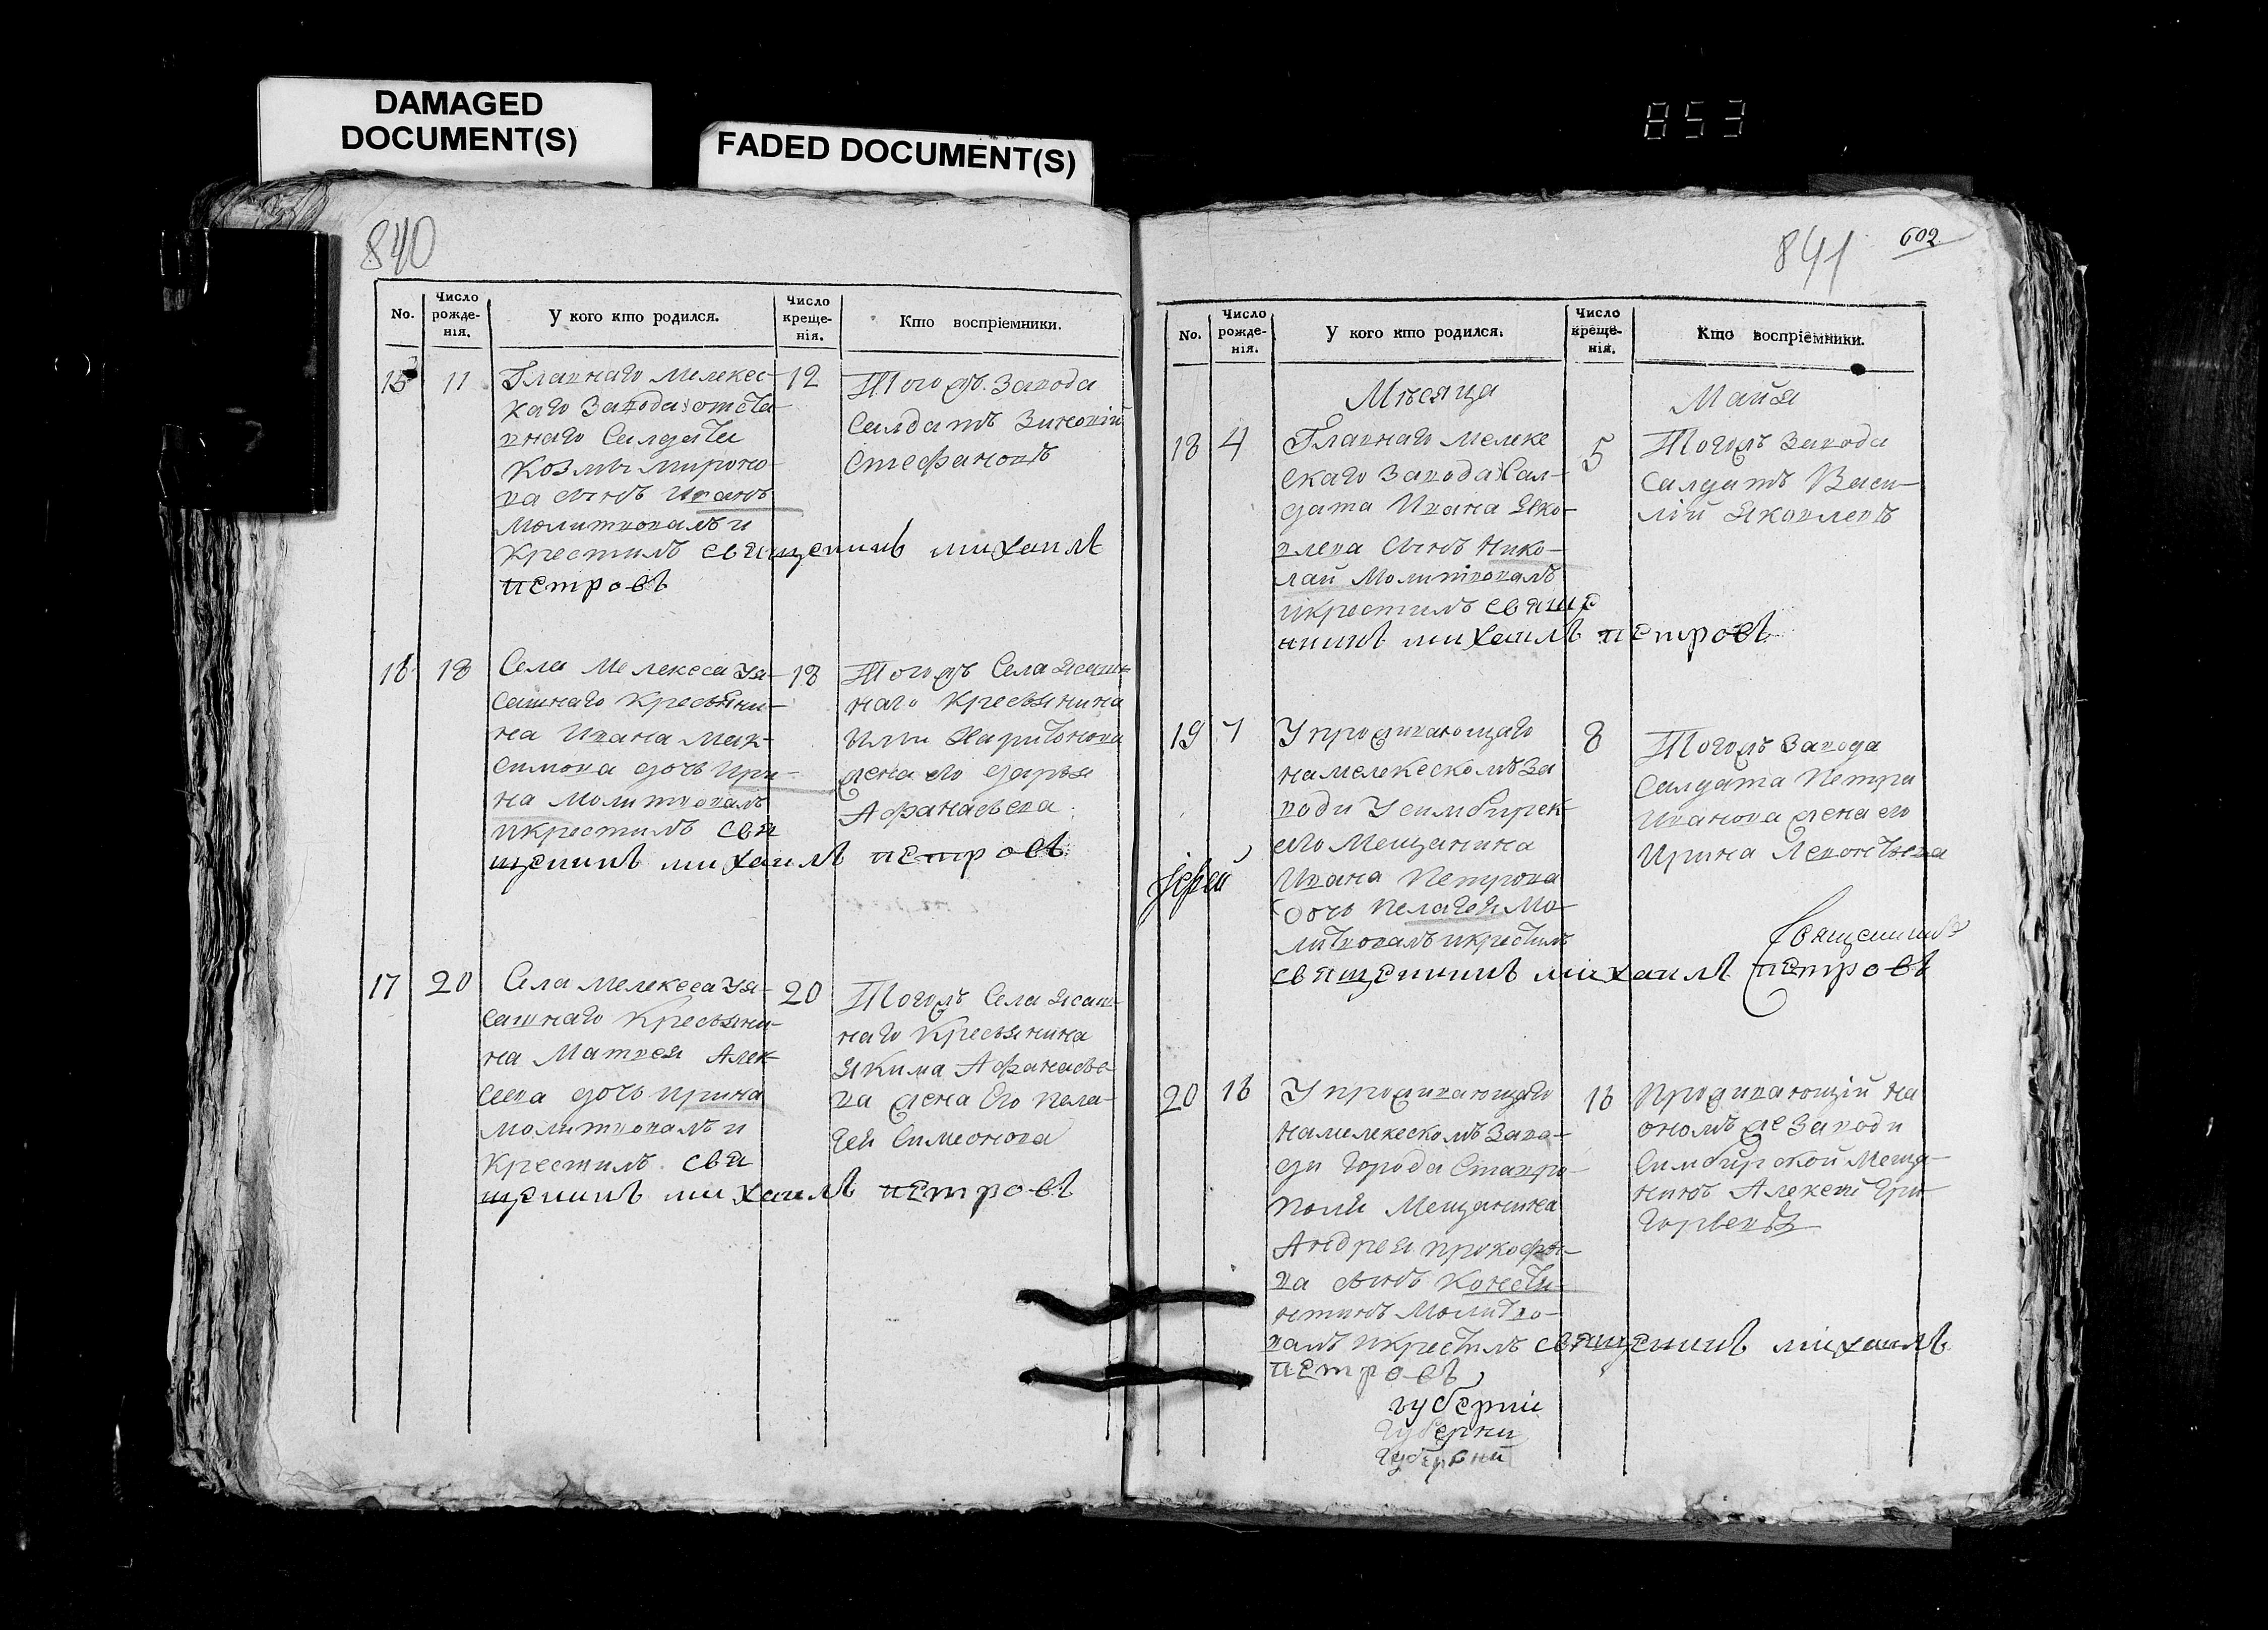 DAMAGED
DOCUMENT(S)
FADED DOCUMENT(S)
853
840
No.
Число рожде-нія.
У кого кто родился.
Число креще-нія.
Кто воспріемники.
15
11
Главнаго Мелекес-
каго Завода отста-
внаго Салдата
Козмы Мироно-
ва сынъ Иванъ
молитвовалъ и
крестилъ священникъ михаилъ
петровъ
12
Тогожъ Завода
Салдатъ Зиновій
Стефановъ
16
18
Села Мелекеса Уя-
сашнаго Кресьяни-
на Ивана Мак-
симова дочь Ири-
на Молитвовалъ
икрестилъ свя
щенникъ михаилъ петровъ
18
Тогожъ Села Ясаш-
наго Кресьянина
Ильи Харитонова
жена его дарья
Афанасьева
17
20
Села Мелекеса Уя-
сашнаго Кресьяни-
на Матвея Алек-
сеева дочь Ирина
молитвовалъ и
крестилъ свя
щенникъ михаилъ петровъ
20
Тогожъ Села Ясаш-
наго Кресьянина
Якима Афанасье-
ва жена Его Пела-
гея Симеонова
841
602
No.
Число рожде-нія.
У кого кто родился.
Число креще-нія.
Кто воспріемники.
Мѣсяца
Майя
18
4
Главнаго Мелеке
скаго Завода Сал-
дата Ивана Яко-
влева сынъ Нико-
лай Молитвовалъ
икрестилъ свяще
нникъ михаилъ петровъ
5
Тогожъ Завода
Салдатъ Васи-
лій Яковлевъ
19
7
Упроживающаго
намелекескомъ За
води Усимбирск-
его Мещанина
Ивана Петрова
дочь Пелагея Мо-
литвовалъ икрестилъ
священникъ михаилъ петровъ
іерей
8
Тогожъ Завода
Салдата Петра
Иванова жена его
Ирина Левонтьева
Священникъ
20
16
Упроживающаго
намелекескомъ Заво-
ди Города Ставро-
поля Мещанина
Андрея Прокофье-
ва сынъ Конста-
нтинъ Молитво-
валъ икрестилъ священникъ михаилъ
петровъ
16
Проживающій на
ономъ же Заводи
Симбирской Меща-
нинъ Алексей Гри-
горьевъ
губерніи
Губерніи
Губерніи